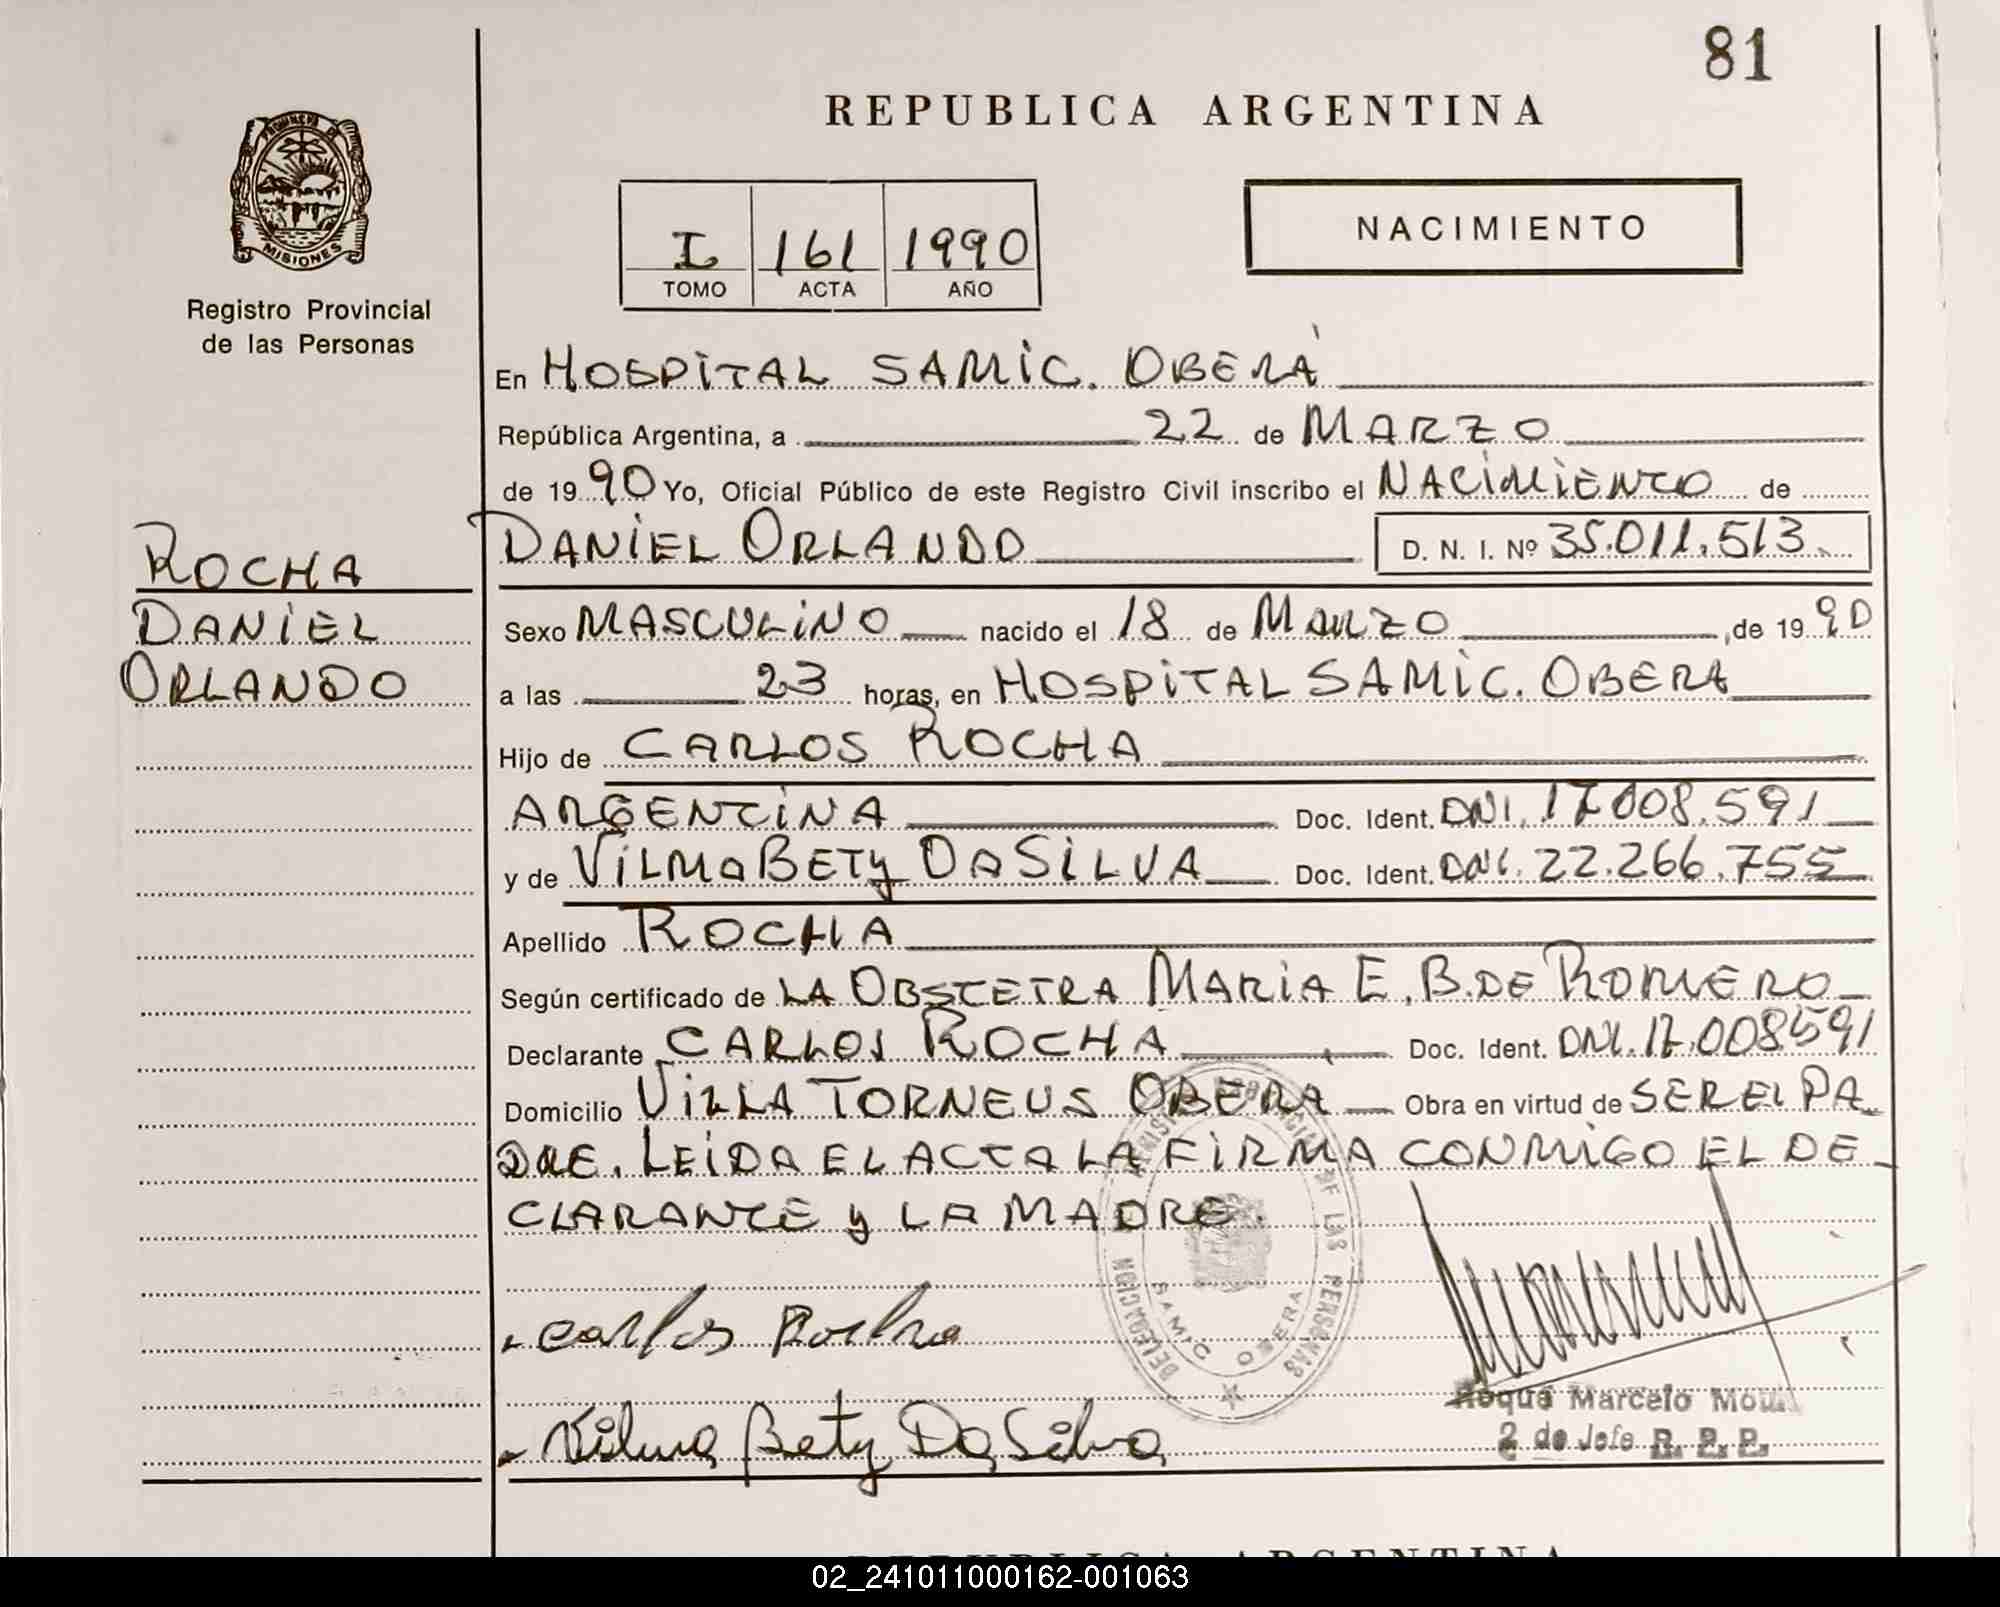 81
REPUBLICA ARGENTINA
PROVINCIA DE
MISIONES
Registro Provincial
de las Personas
I 161 1990
TOMO ACTA AÑO
NACIMIENTO
En HOSPITAL SAMIC. OBERÁ
República Argentina, a 22 de MARZO
de 1990 Yo, Oficial Público de este Registro Civil inscribo el NACIMIENTO de
DANIEL ORLANDO D. N. I. Nº 35.011.513.
ROCHA
DANIEL
ORLANDO
Sexo MASCULINO nacido el 18 de MARZO de 1990
a las 23 horas, en HOSPITAL SAMIC. OBERA
Hijo de CARLOS ROCHA
ARGENTINA Doc. Ident. DNI. 17.008.591
y de VILMA BETY DA SILVA Doc. Ident. DNI. 22.266.755
Apellido ROCHA
Según certificado de LA OBSTETRA MARIA E. B. DE ROMERO
Declarante CARLOS ROCHA Doc. Ident. DNI. 17.008591
Domicilio VILLA TORNEUS OBERÁ Obra en virtud de SER EL PA
DRE. LEIDA EL ACTA LA FIRMA CONMIGO EL DE
CLARANTE y LA MADRE.
DELEGACION SAMIC OBERA
DE LAS PERSONAS
Carlos Rocha
Vilma Bety Da Silva
Roque Marcelo
2 de Jefe R. P. P.
REPUBLICA ARGENTINA
02_241011000162-001063